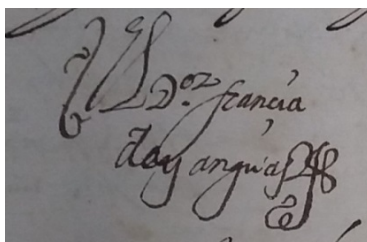 El D.or francia
de yanguas